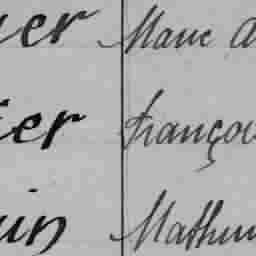 er Marie A
ier Françoi
uin Mathuri